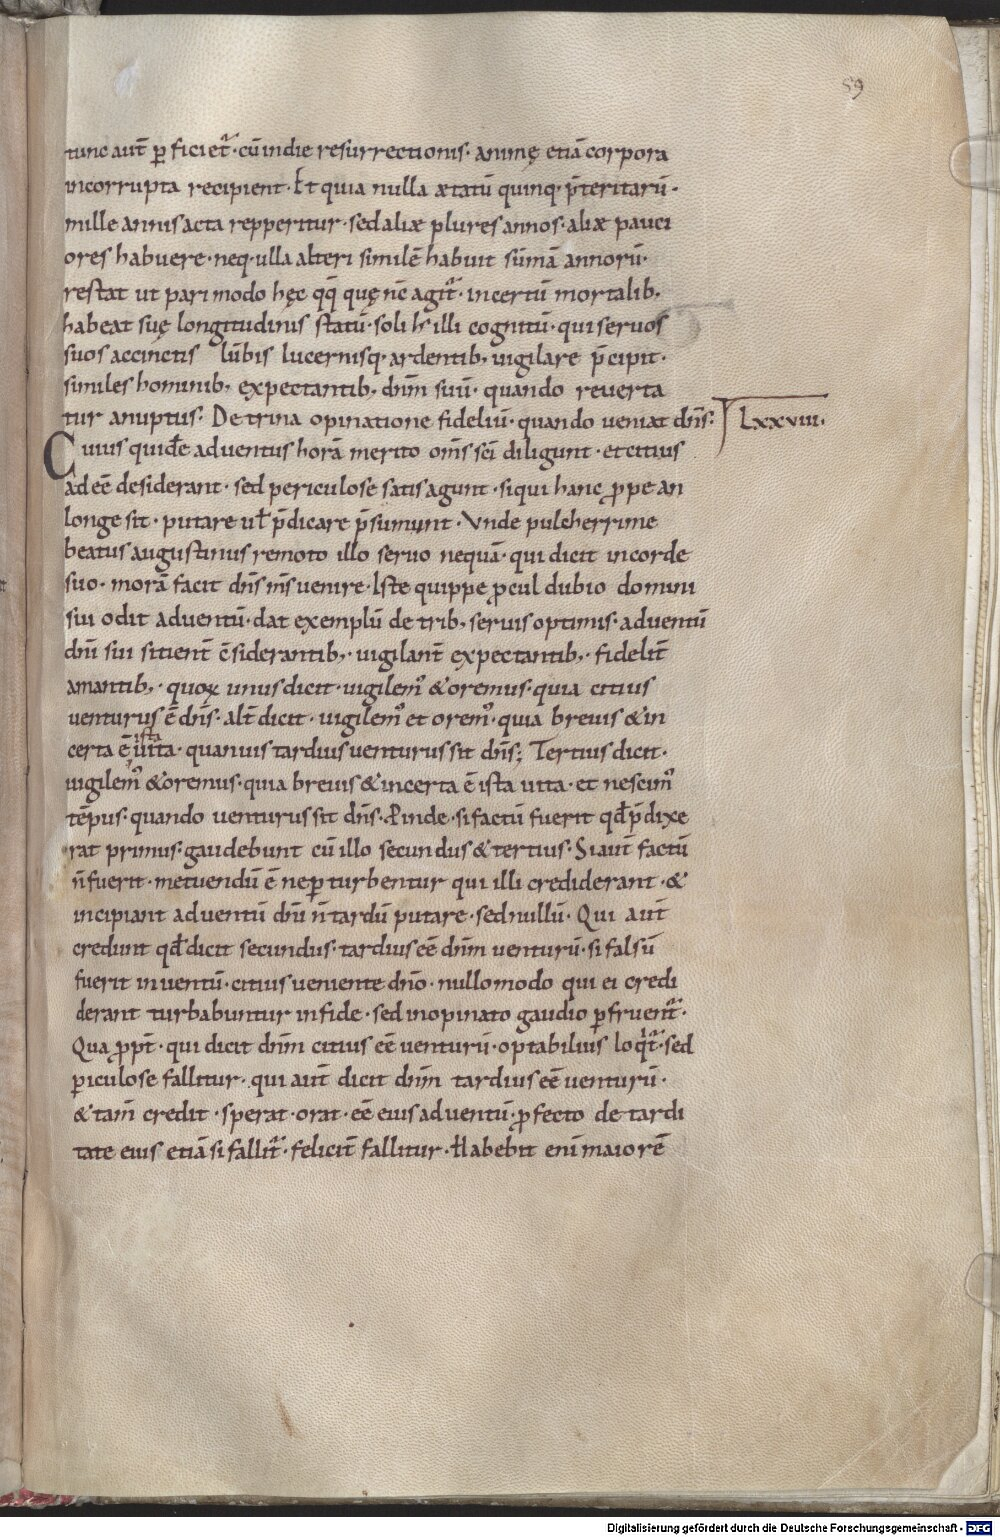 59
tunc aut̄ ꝑficiet᷑· cū in die resurrectionis· animę etiā corpora
incorrupta recipient· Et quia nulla ætatū quinq· p̄teritarū·
mille annis acta repperitur· sed aliæ plures annos· aliæ pauci
ores habuere· neq· ulla alteri similē habuit sūmā annorū·
restat ut pari modo hęc qq̄ quę nc̄ agit᷑· incertū mortalib,
habeat suę longitudinis statū· soli hˢ illi cognitū· qui seruos
suos accinctis lūbis lucernisq· ardentib, uigilare p̄cipit·
similes hominib, expectantib, dnm̄ suū· quando reuerta
tur a nuptiis: De trina opinatione fideliū· quando ueniat dn̄s: Lxxviii·
Cuius quidē aduentus horā merito om̄s sc̄i diligunt· et citius
adeē desiderant· sed periculose satis agunt· si qui hanc ꝓpe an
longe sit· putare ul̄ p̄dicare p̄sumunt· Vnde pulcherrime
beatus augustinus remoto illo seruo nequā· qui dicit in corde
suo· morā facit dn̄s ms̄ uenire· Iste quippe ꝓcul dubio domini
sui odit aduentū· dat exemplū de trib, seruis optimis· aduentū
dn̄i sui sitient̄ desiderantib,· uigilant̄ expectantib,· fidelit̄
amantib,· quoꝝ unus dicit· uigilem᷒ & oremus· quia citius
venturus ē dn̄s· alt̄ dicit· uigilem᷒ et orem᷒· quia breuis & in
certa ē ista uita· quanuis tardius uenturus sit dn̄s; Tertius dicit·
uigilem᷒ & oremus· quia breuis & incerta ē ista uita· et nescim᷒
tēpus· quando uenturus sit dn̄s· Proinde· si factū fuerit qd̄ p̄dixe
rat primus· gaudebunt cū illo secundus & tertius· Si aut̄ factū
n̄ fuerit· metuendū ē ne ꝑturbentur qui illi crediderant· &
incipiant aduentū dn̄i n̄ tardū putare· sed nullū· Qui aut̄
credunt qd̄ dicit secundus· tardius eē dnm̄ venturū· si falsū
fuerit inuentū· citius ueniente dn̄o· nullo modo qui ei credi
derant turbabuntur in fide· sed inopinato gaudio ꝑfruent᷑·
Qua ꝓpt̄· qui dicit dnm̄ citius eē venturū· optabilius loqit᷑· sed
ꝑiculose fallitur· qui aut̄ dicit dnm̄ tardius eē uenturū·
& tam̄ credit· sperat· orat· eē eius aduentū· ꝓfecto de tardi
tate eius etiā si fallit᷑· felicit̄ fallitur· Habebit enī maiorē
Digitalisierung gefördert durch die Deutsche Forschungsgemeinschaft - DFG